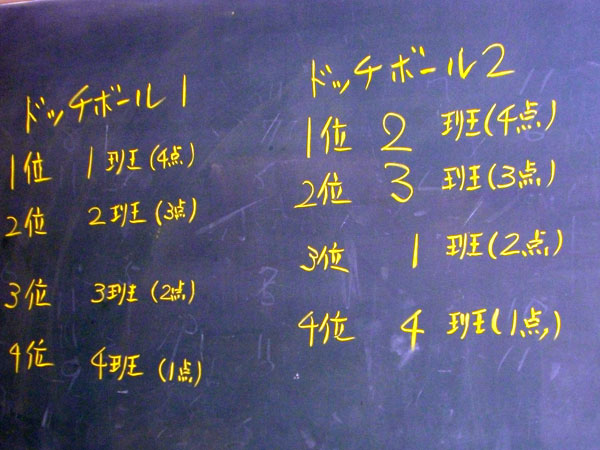 ドッチボール1
1位 1班(4点)
2位 2班(3点)
3位 3班(2点)
4位 4班(1点)
ドッチボール2
1位 2班(4点)
2位 3班(3点)
3位 1班(2点)
4位 4班(1点)